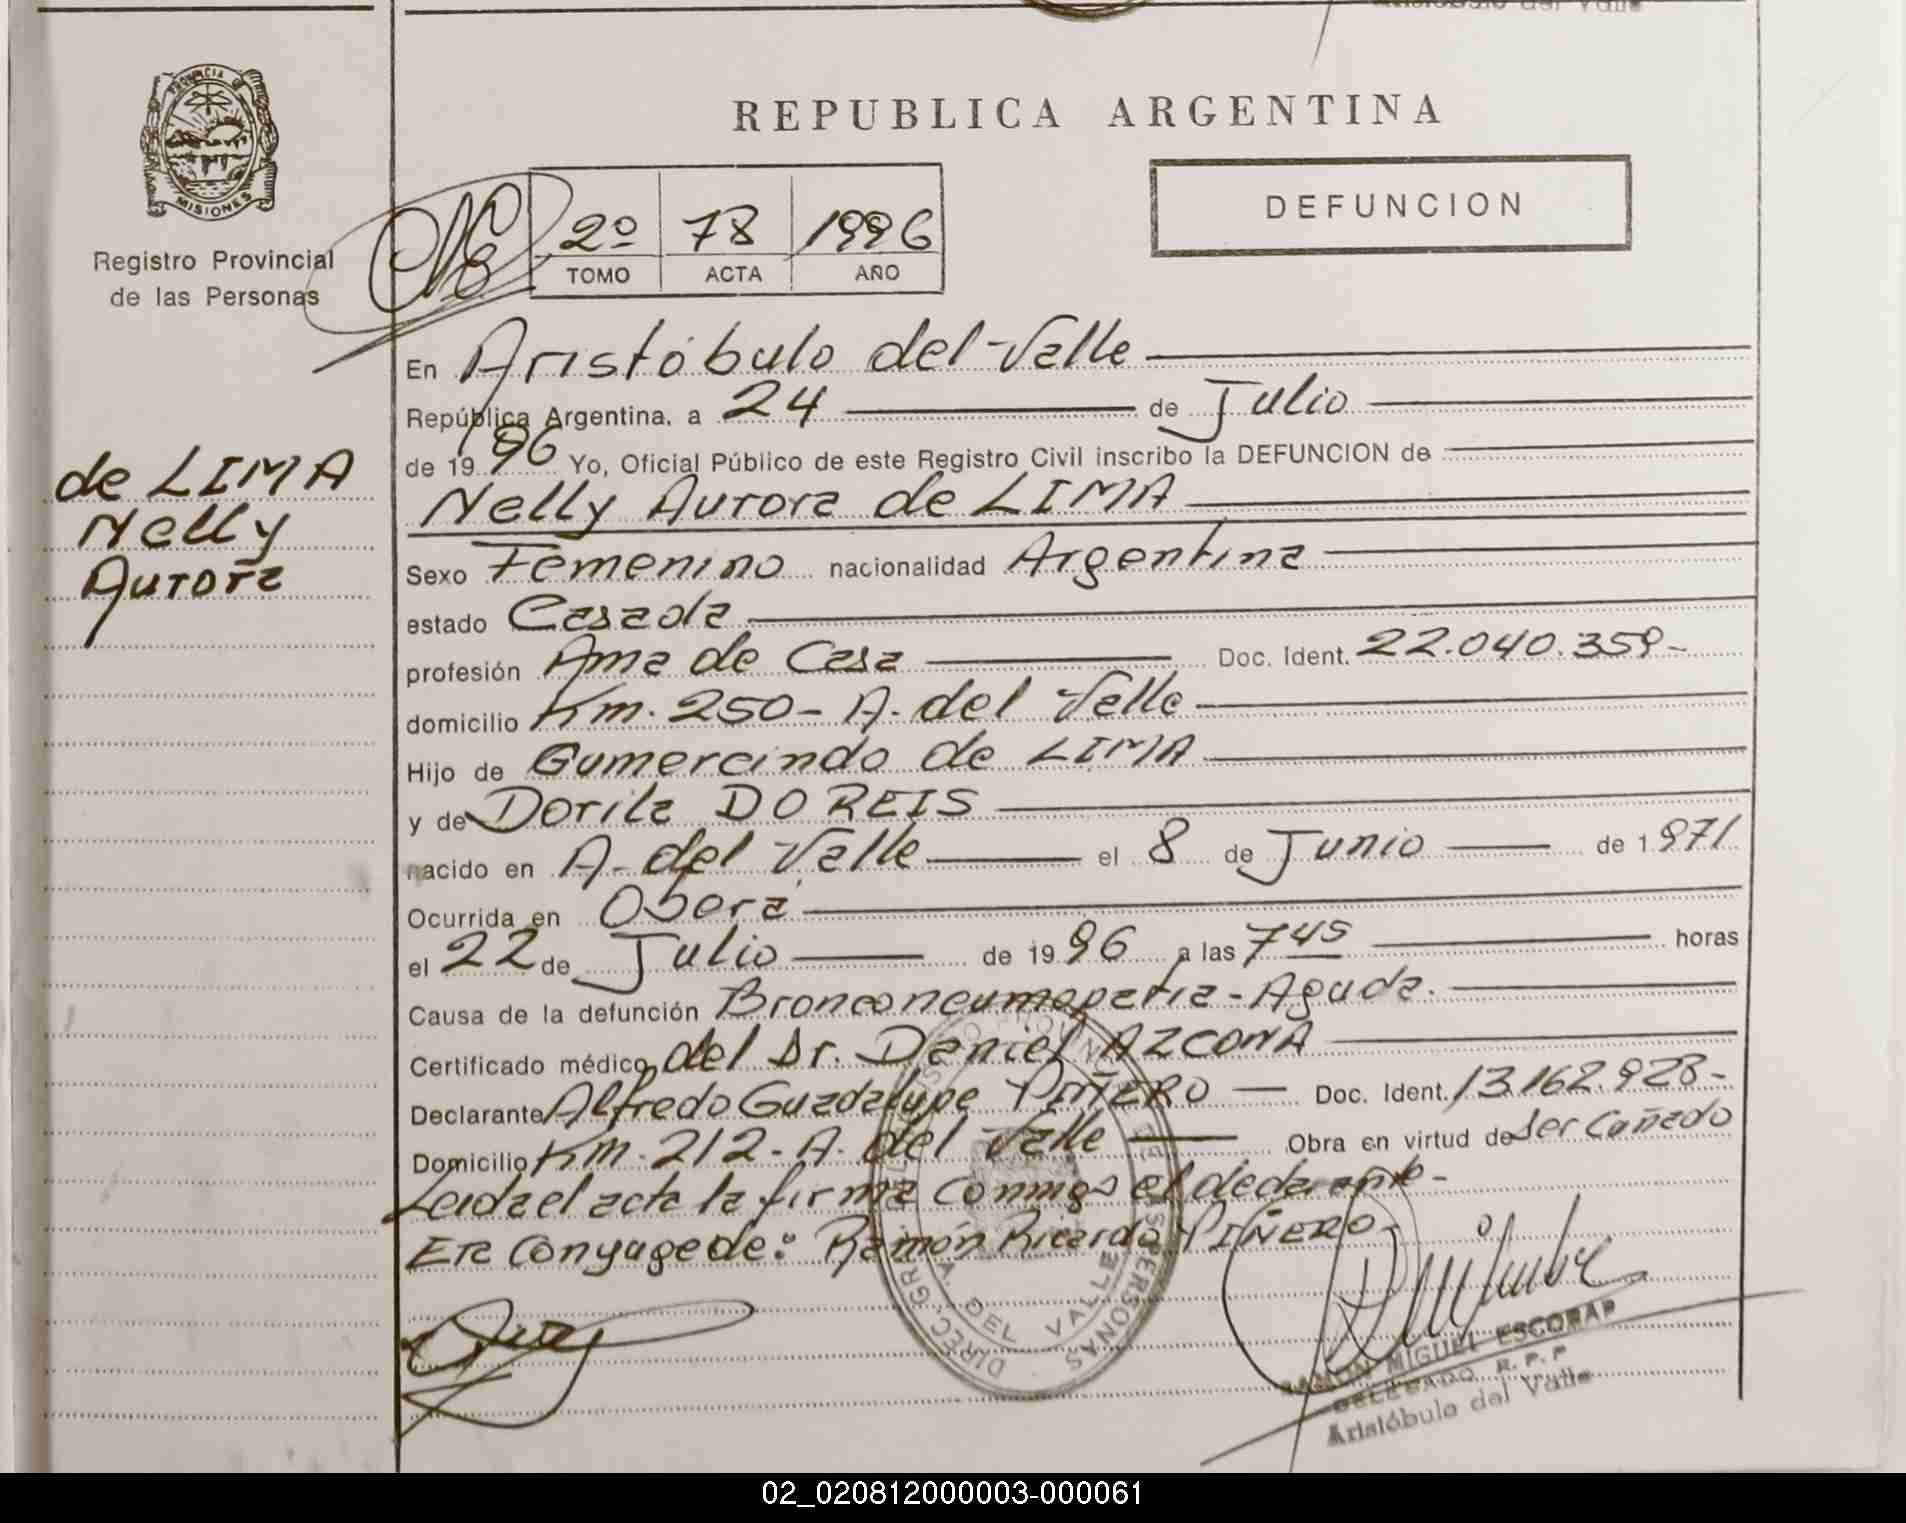 Aristóbulo del Valle
PROVINCIA DE
MISIONES
Registro Provincial
de las Personas
REPUBLICA ARGENTINA
DEFUNCION
2º 78 1996
TOMO ACTA AÑO
de LIMA
Nelly
Aurora
En Aristóbulo del Valle
República Argentina, a 24 de Julio
de 1996 Yo, Oficial Público de este Registro Civil inscribo la DEFUNCION de
Nelly Aurora de LIMA
Sexo Femenino nacionalidad Argentina
estado Casada
profesión Ama de Casa Doc. Ident. 22.040.359-
domicilio Km. 250- A. del Valle
Hijo de Gumercindo de LIMA
y de Dorila DO REIS
nacido en A. del Valle el 8 de Junio de 1971
Ocurrida en Oberá
el 22 de Julio de 1996 a las 7 45 horas
Causa de la defunción Bronconeumopatia-Aguda.
Certificado médico del Dr. Daniel AZCONA
Declarante Alfredo Guadalupe PIÑERO Doc. Ident. 13.162.928-
Domicilio Km. 212- A. del Valle Obra en virtud de Ser Cuñado
Leida el acta la firma conmigo el declarante-
Era Conyuge de: Ramón Ricardo PIÑERO-
DEL VALLE
RAMON MIGUEL ESCOBAR
DELEGADO R. P. P
Aristóbulo del Valle
02_020812000003-000061